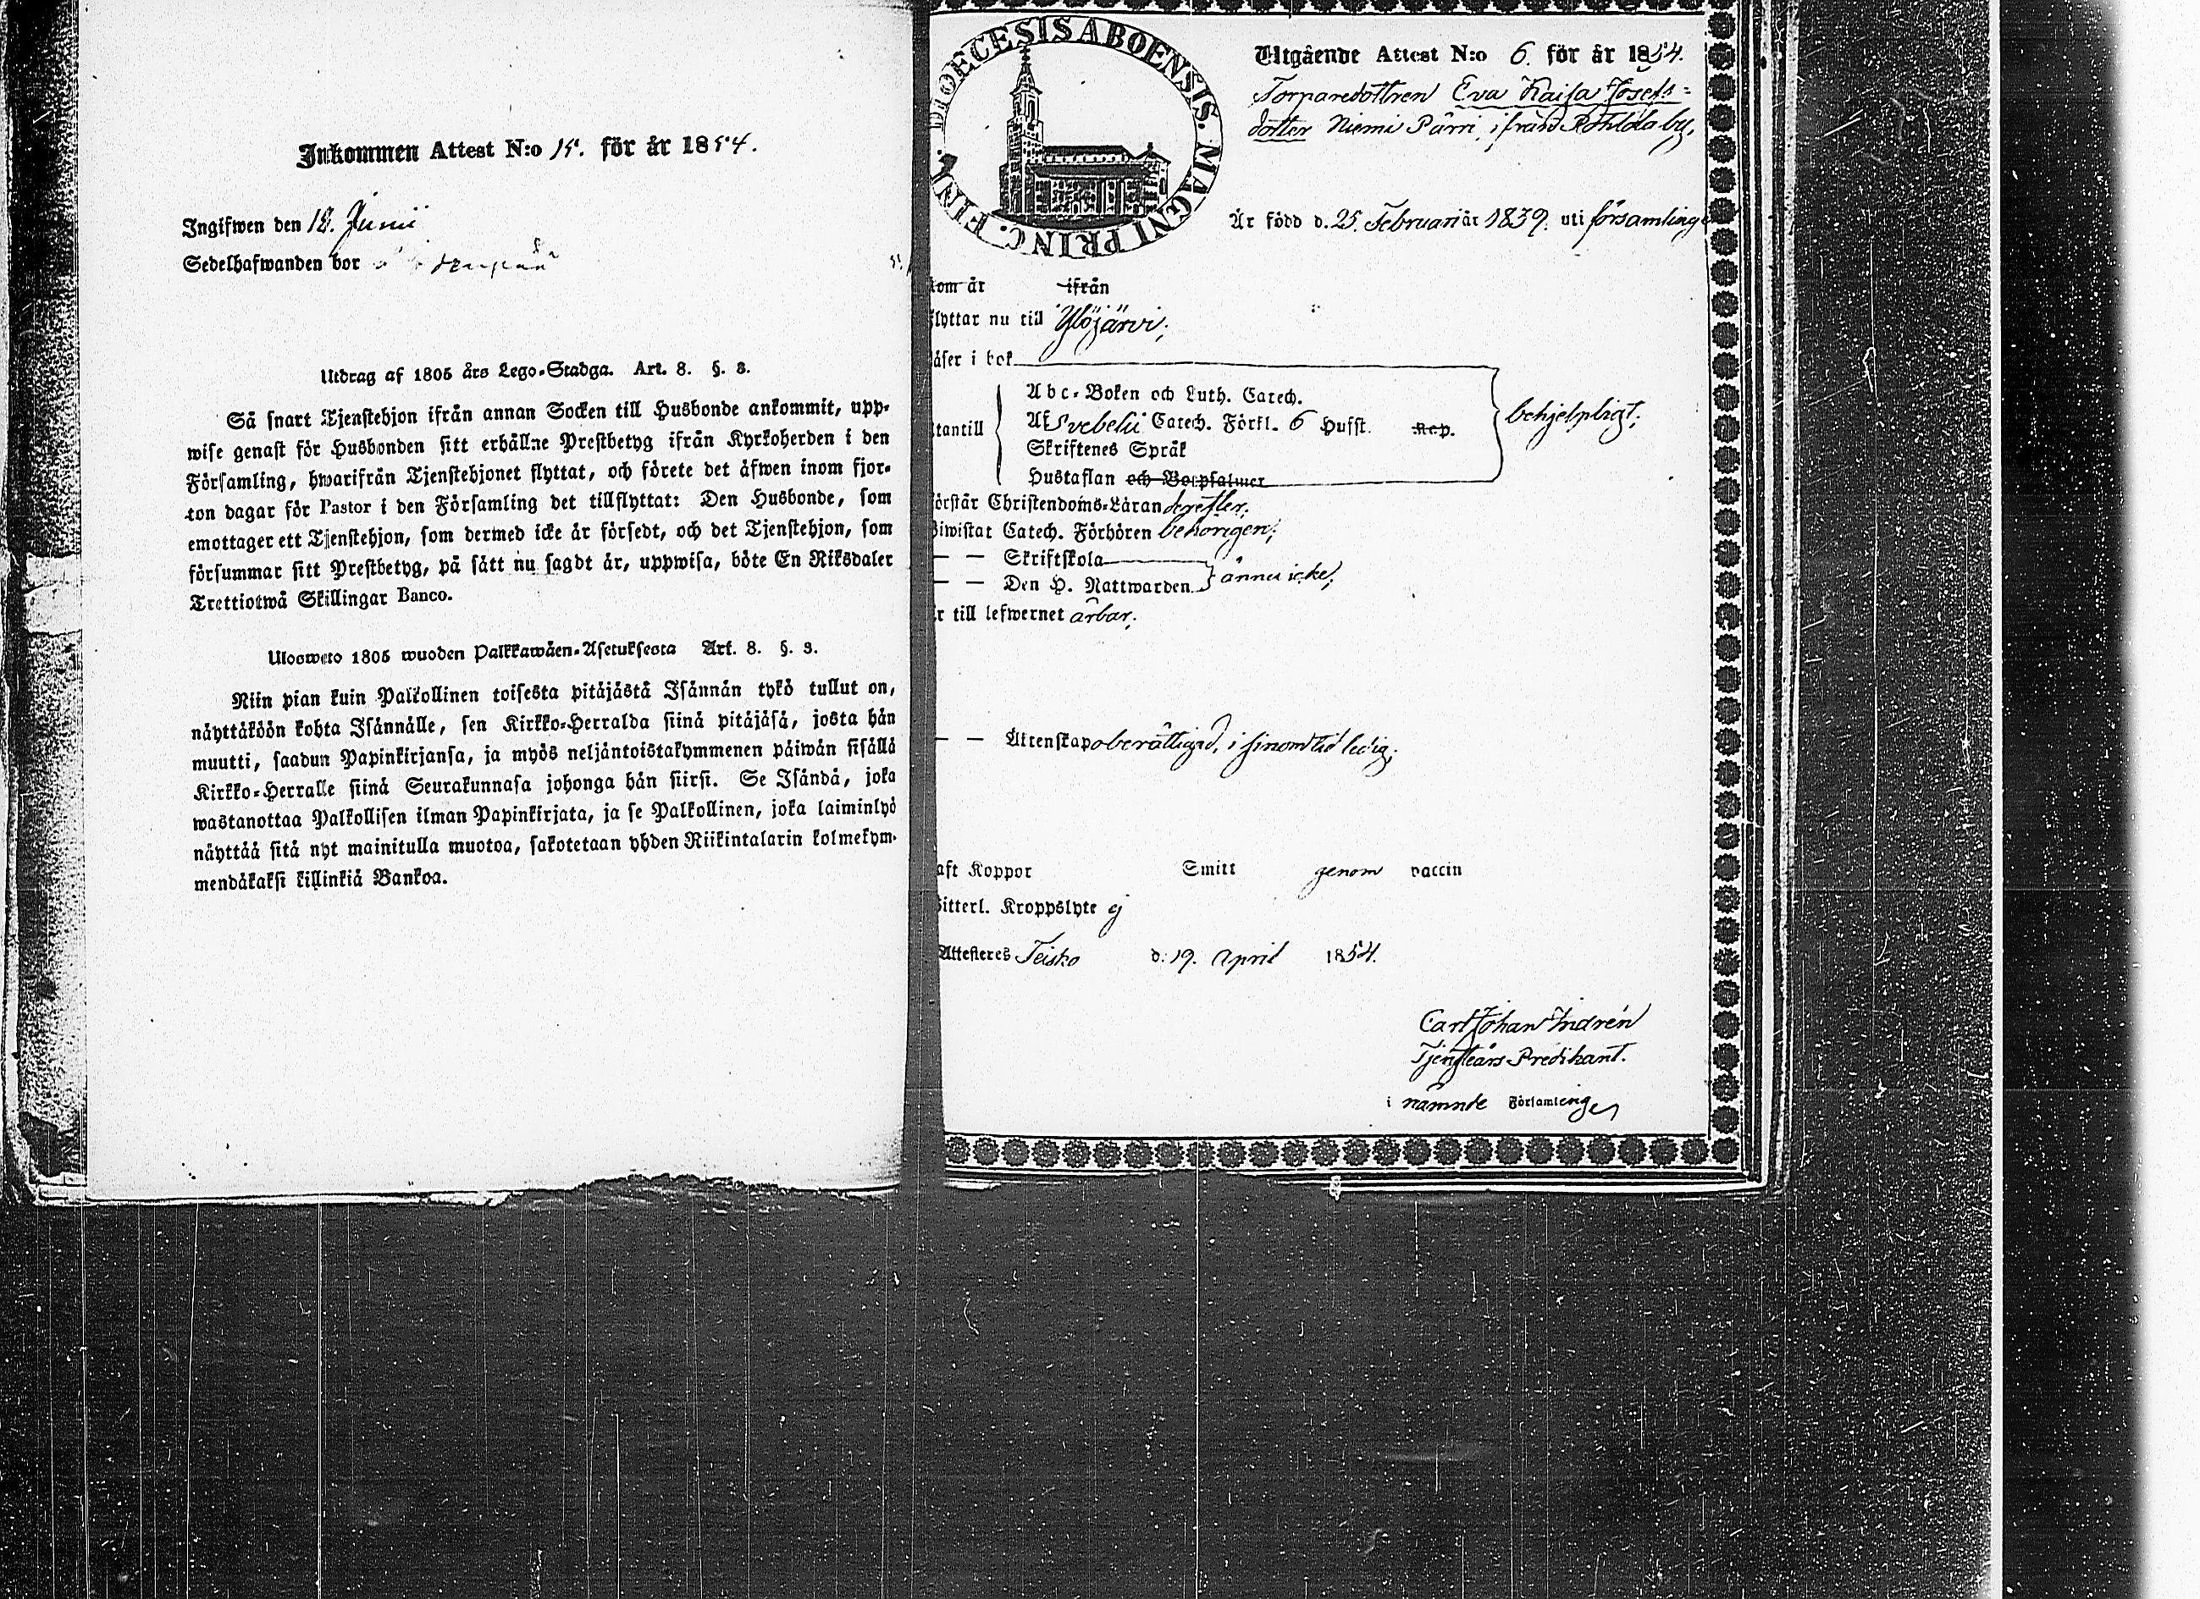 Inkommen Attest N:o 15. för år 1854.
Ingifwen den 18. Junii
Sedelhafwanden bor
Utdrag af 1805 års Lego-Stadga. Art. 8. §. 3.
Så snart Tjenstehjon ifrån annan Socken till Husbonde ankommit, upp-
wise genast för Husbonden sitt erhållne Prestbetyg ifrån Kyrkoherden i den
Församling, hwarifrån Tjenstehjonet flyttat, och förete det äfwen inom fjor-
ton dagar för Pastor i den Församling det tillflyttat: Den Husbonde, som
emottager ett Tjenstehjon, som dermed icke är försedt, och det Tjenstehjon, som
försummar sitt Prestbetyg, på sätt nu sagdt är, uppwisa, böte En Riksdaler
Trettiotwå Skillingar Banco.
Ulosweto 1805 wuoden Palkkawäen-Asetuksesta Art. 8. §. 3.
Niin pian kuin Palkollinen toisesta pitäjästä Isännän tykö tullut on,
näyttäköön kohta Isännälle, sen Kirkko-Herralda siinä pitäjäsä, josta hän
muutti, saadun Papinkirjansa, ja myös neljäntoistakymmenen päiwän sisällä
Kirkko-Herralle siinä Seurakunnasa johonga hän siirsi. Se Isändä, joka
wastanottaa Palkollisen ilman Papinkirjata, ja se Palkollinen, joka laiminlyö
näyttää sitä nyt mainitulla muotoa, sakotetaan yhden Riikintalarin kolmekym-
mendäkaksi killinkiä Bankoa.
DIOECESIS ABOENSIS. MAGNI PRINC. FINL.
Utgående Attest N:o 6. för år 1854.
Torparedottren Eva Kaisa Josefs-
dotter Niemi Pärri, ifrån by,
Är född d. 25. Februari år 1839. uti församlingen
kom år ifrån
flyttar nu till Ylöjärvi;
läser i bok
Abc-Boken och Luth. Catech.
utantill Af Svebelii Catech. Förkl. 6 Hufst. Rep. behjelpligt;
Skriftenes Språk
Hustaflan och Botpsalmer
förstår Christendoms-Läran derefter;
Biwistat Catech. Förhören behörigen;
— — Skriftskola
— — Den H. Nattwarden ännu icke;
är till lefwernet ärbar;
— — Äktenskap oberättigad, i sinom tid ledig;
haft Koppor Smitt genom vaccin
Witterl. Kroppslyte ej
Attesteres Teisko d: 19. April 1854.
Carl Johan Indrén
Tjensteårs-Predikant.
i nämnde Församlingen